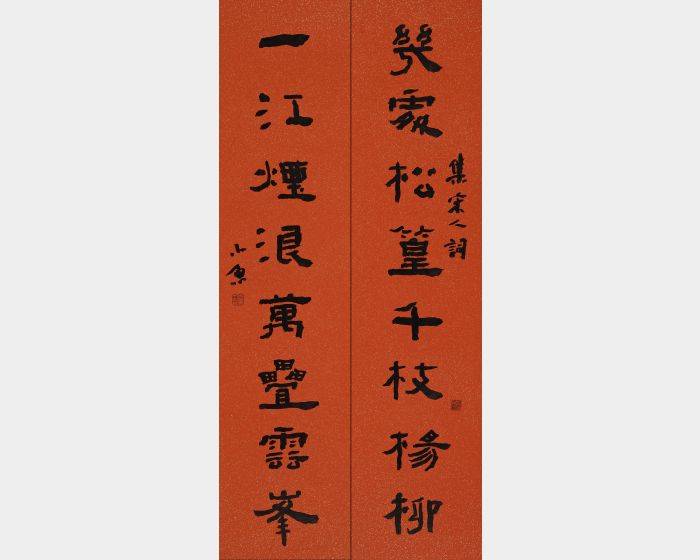 幾處松篁千枝楊柳
集宋人詞
一江煙浪萬疊雲峯
小魚